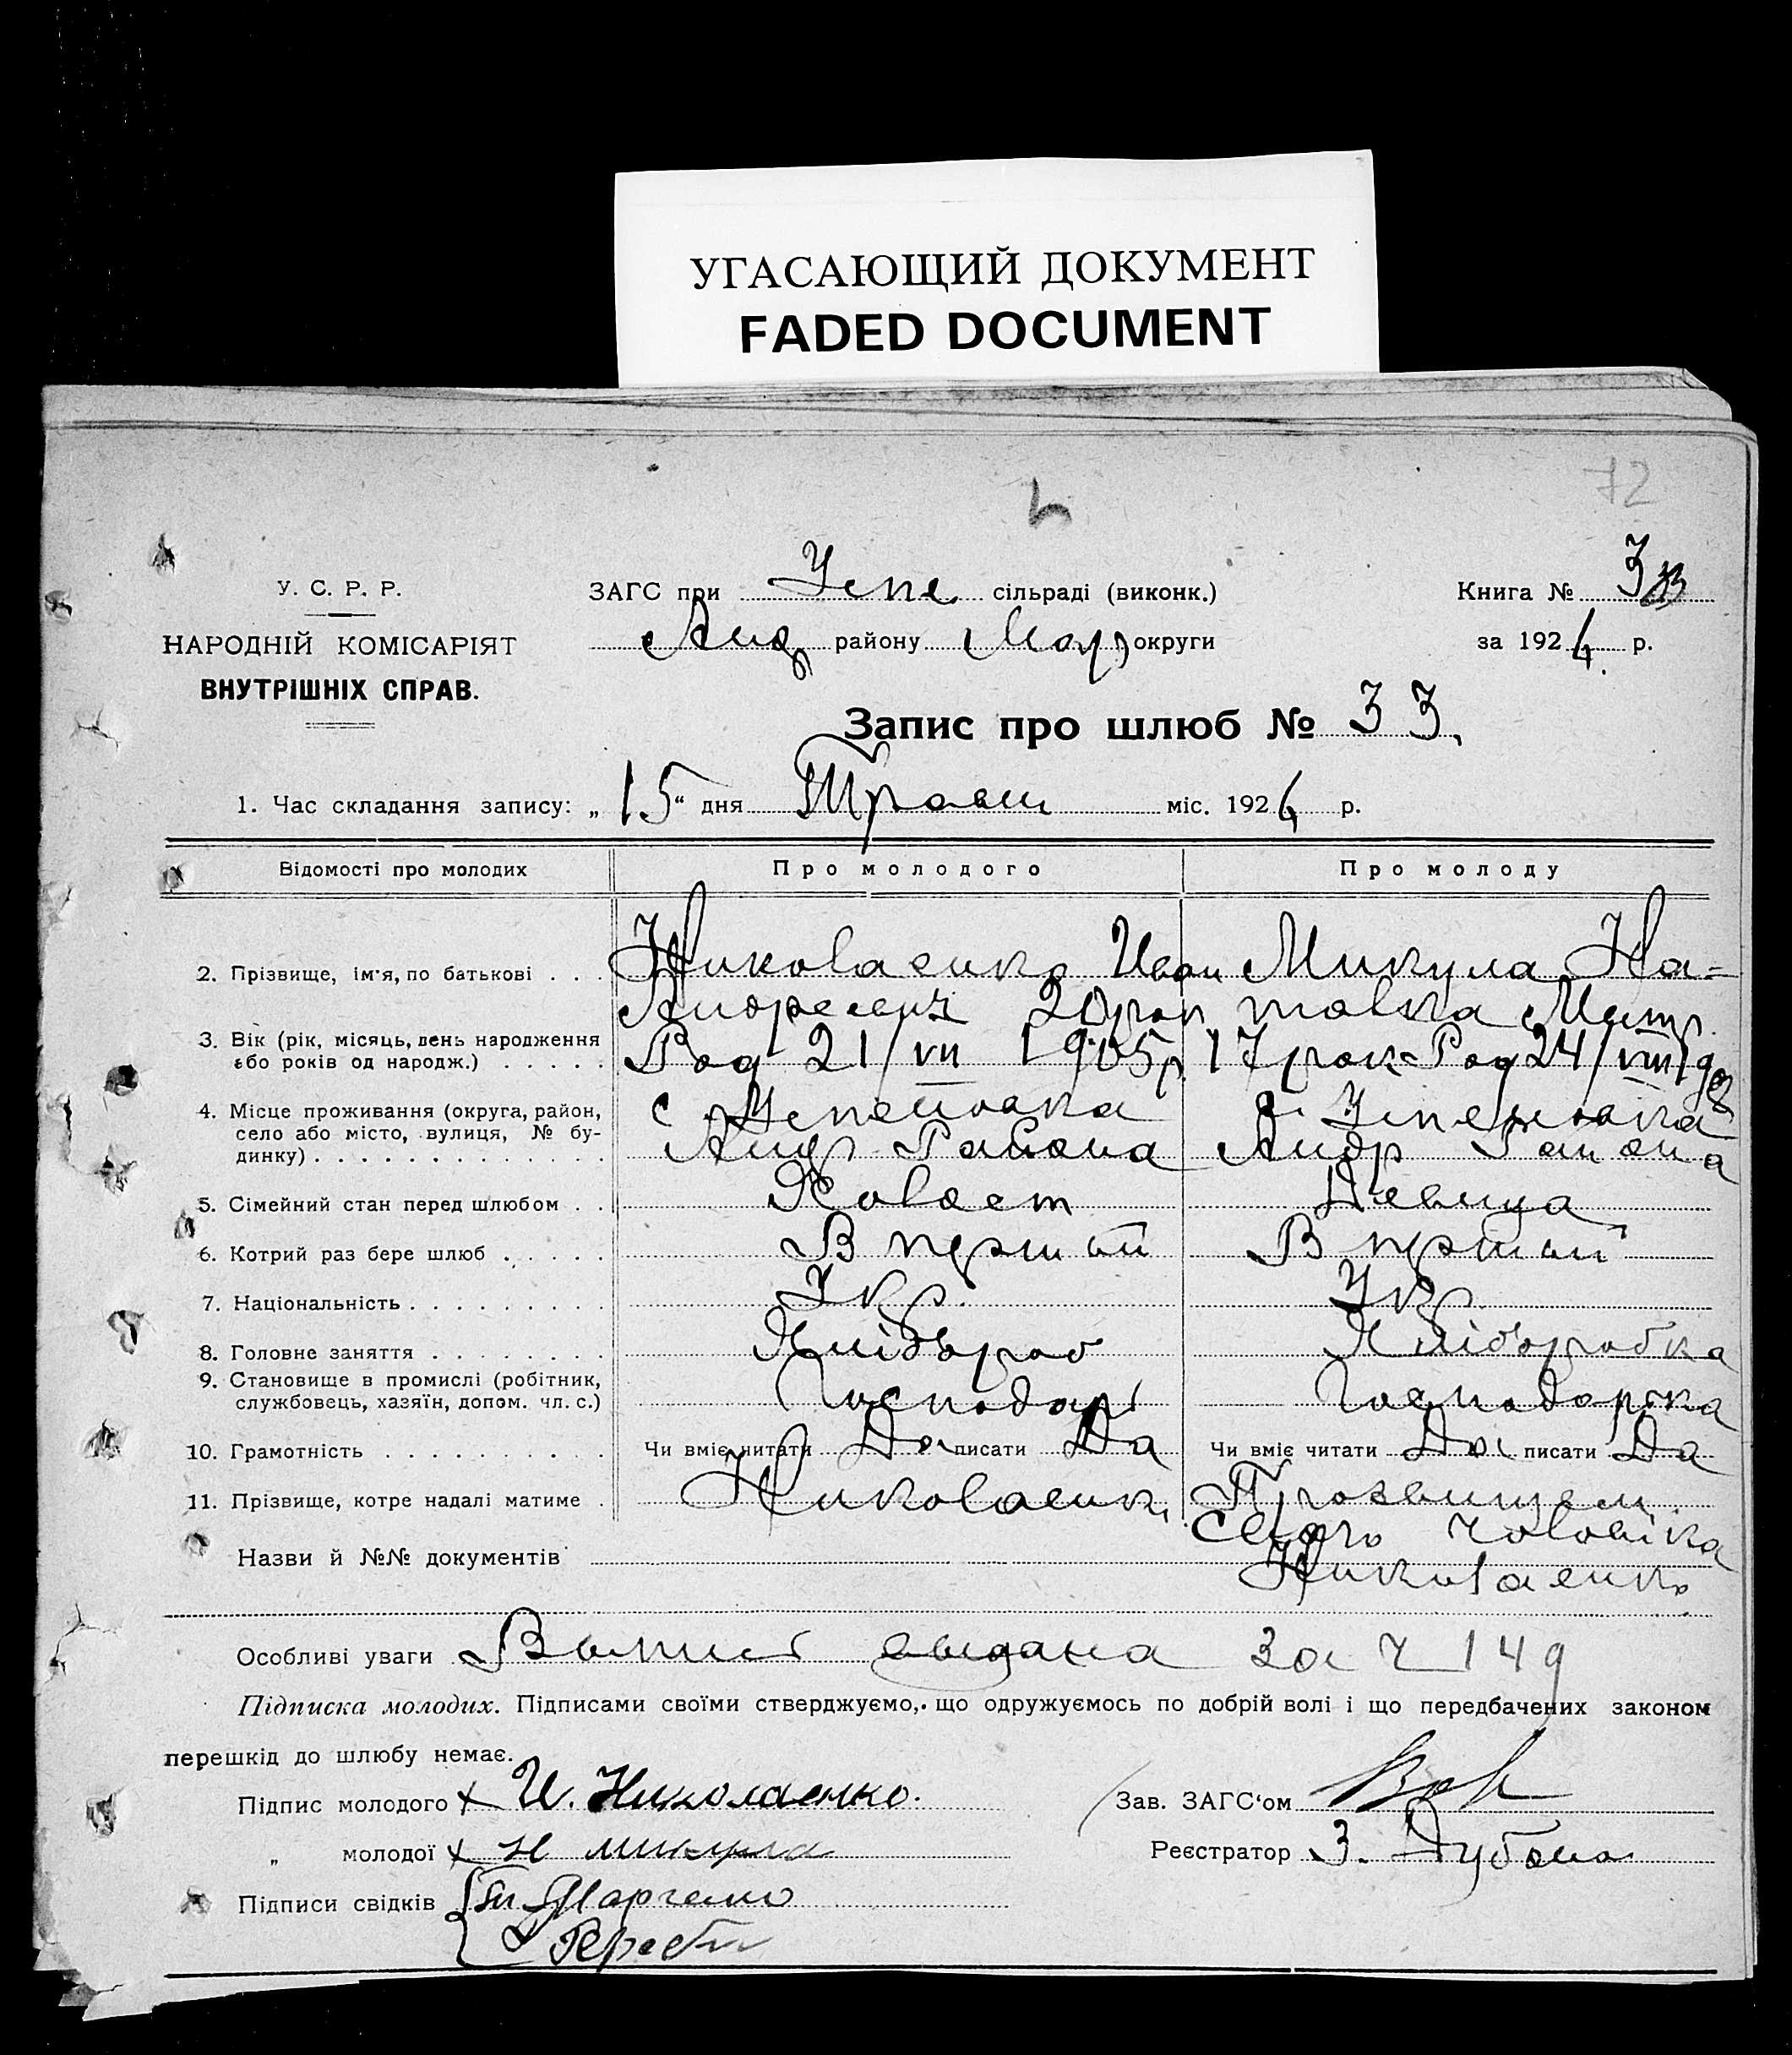 УГАСАЮЩИЙ ДОКУМЕНТ
FADED DOCUMENT
72
У. С. Р. Р.
НАРОДНІЙ КОМІСАРІЯТ
ВНУТРІШНІХ СПРАВ.
ЗАГС при Успе сільраді (виконк.)
Анд району Мар округи
Книга № 3
за 1926 р.
Запис про шлюб № 33.
1. Час складання запису: „15“ дня Травш міс. 1926 р.
Відомості про молодих Про молодого Про молоду
2. Прізвище, ім'я, по батькові . . . Николаенко Иван Микула На-
Андреевич 20 рок талка Митр.
3. Вік (рік, місяць, день народження
або років од народж.) . . . . . Род 21/VII 1905р. 17 рок Род 24/VIII 190
4. Місце проживання (округа, район, с Успеновка с Успеновка
село або місто, вулиця, № бу-
динку) . . . . . . . . . . . . . Анд Района Андр Района
5. Сімейний стан перед шлюбом . . Холост Девица
6. Котрий раз бере шлюб . . . . . В першый В першый
7. Національність . . . . . . . . . Укр. Укр.
8. Головне заняття . . . . . . . . Хлібороб Хліборобка
9. Становище в промислі (робітник,
службовець, хазяїн, допом. чл. с.) Господарь Господарька
10. Грамотність . . . . . . . . . . Чи вміє читати Да писати Да Чи вміє читати Да писати Да
11. Прізвище, котре надалі матиме . Николаенк. Прозвищем
свого чоловіка
Назви й №№ документів
Николаенко
Особливі уваги Выпись выдана за ч 149
Підписка молодих. Підписами своїми стверджуємо, що одружуємось по добрій волі і що передбачених законом
перешкід до шлюбу немає.
Підпис молодого х И. Николаенко.
Зав. ЗАГС'ом
„ молодої х Н микула
Реєстратор З.
Підписи свідків